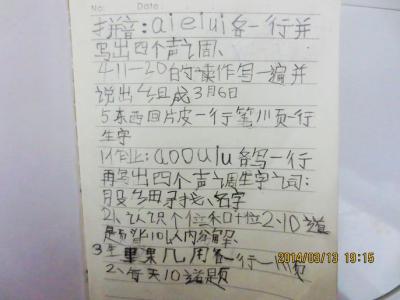 No: Date:
拼音:aieiui各一行并
写出四个声调、
4.11—20的读作写一遍并
说出组成3月6日
5东西回片皮一行笔川页一行
生字
aoouiu各写一行
再写出四个声调生字之词:
名字
2认识个位和十位2、10道
是 10以内分解、
3生里果几用各一行一 页
2、每天10道题
2014/03/13 19:15